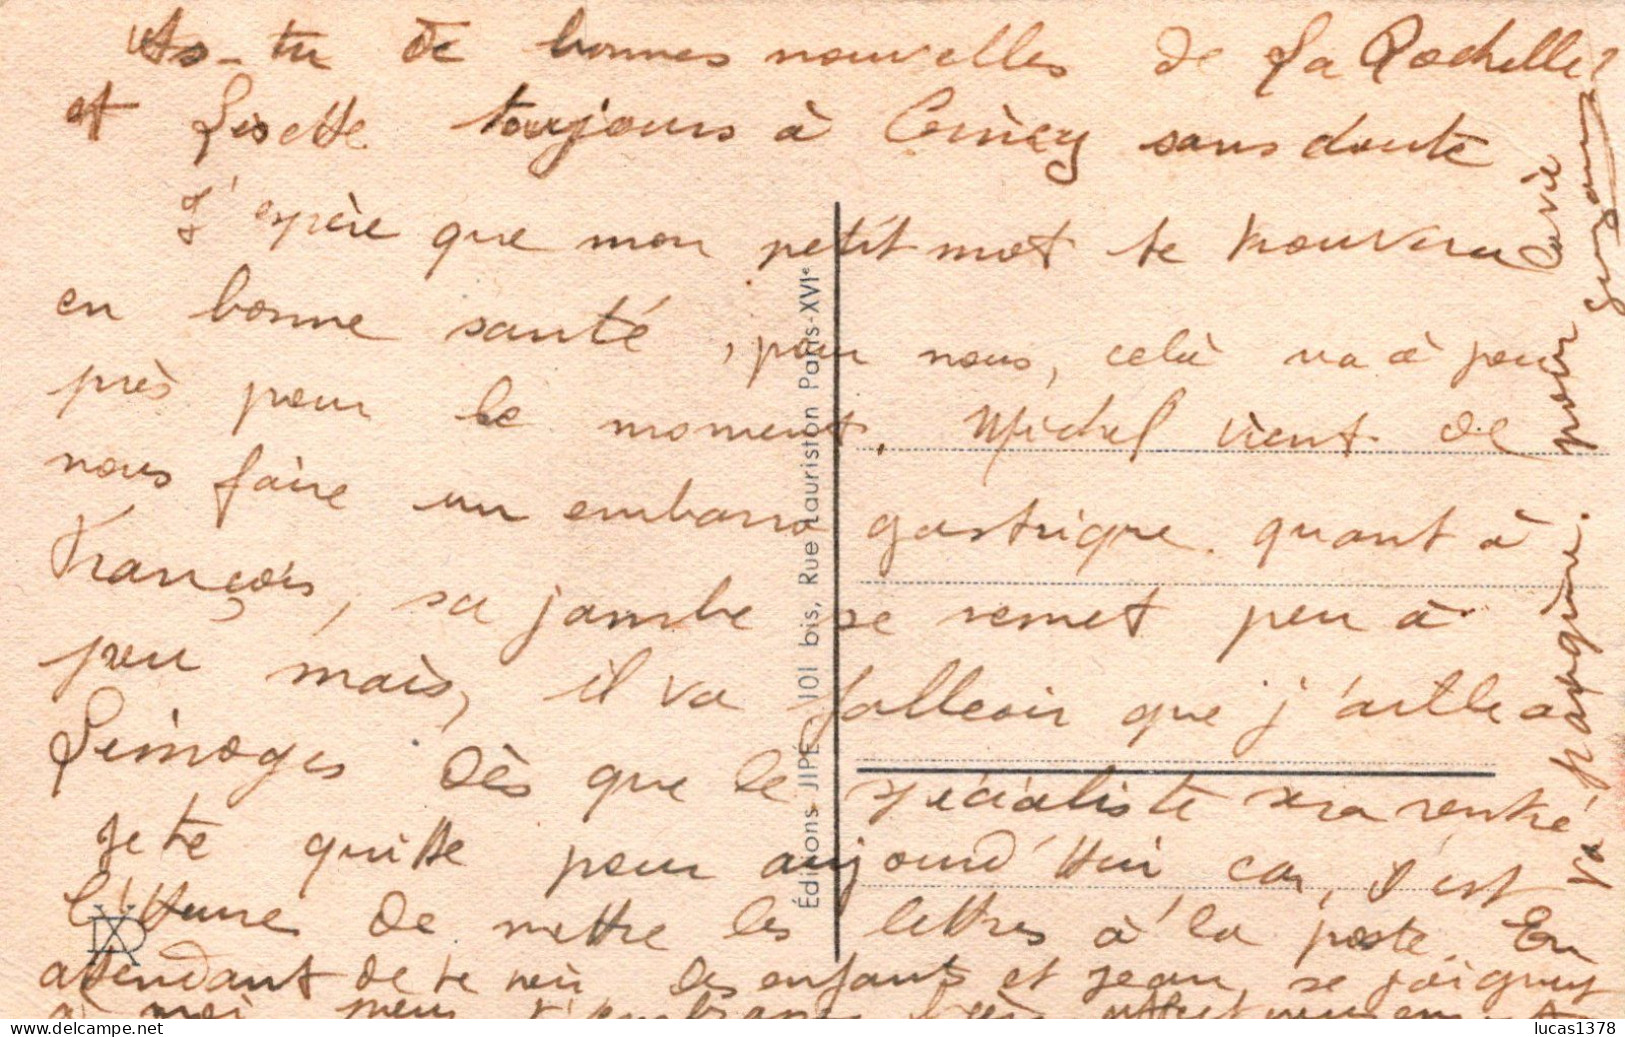 As-tu de bonnes nouvelles de La Rochelle?
et Lisette toujours à sans doute
J'espère que mon petit mot te trouvera
en bonne santé, pour nous, celà va à peu
près pour le moment. Michel vient de
nous faire un embarra gastrique. quant à
François, sa jambe se remet peu à
peu mais, il va falleoir que j'aille a
Limoges dès que le spécialiste sera rentré
Je te quitte pour aujourd'hui car, c'est
l'heure de mettre les lettres à la poste. En
attendant de te voir les enfants et Jean, se joignent
à moi pour t'embrasser bien affectueusement
pour la vie
Va papeque.
Suzanne
Éditions JIPÉ 101 bis, Rue Lauriston Paris-XVIe
lucas1378